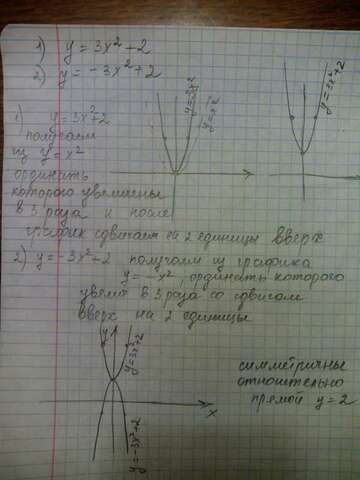 1) y = 3x² - 2
2) y = -3x² + 2
1) y = 3x² + 2
получаем
из y = x²
ординаты
которого увеличены
в 3 раза и после
график сдвигаем на 2 единицы вверх
y = 3x²
y = x²
y = 3x² + 2
2) y = -3x² + 2 получаем из графика
y = -x², ординаты которого
увелич в 3 раза со сдвигом
вверх на 2 единицы
y
y = 3x² + 2
x
y = -3x² + 2
симметричны
относительно
прямой y = 2